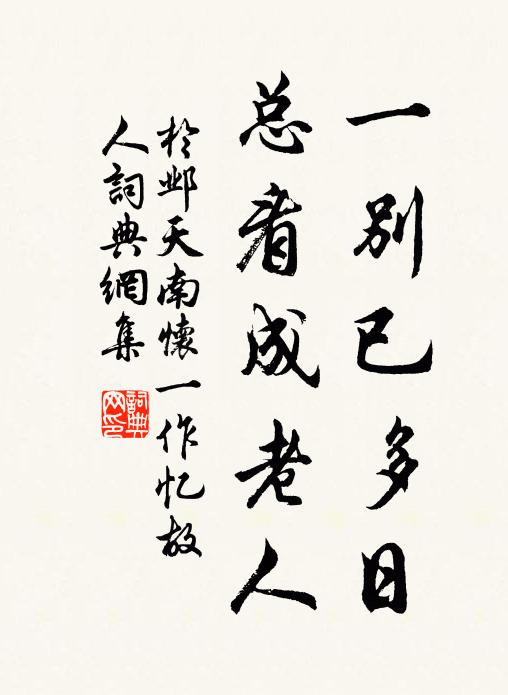 一别已多日
总看成老人
於邺天南怀一作忆故
人詞典網集
詞典
网印